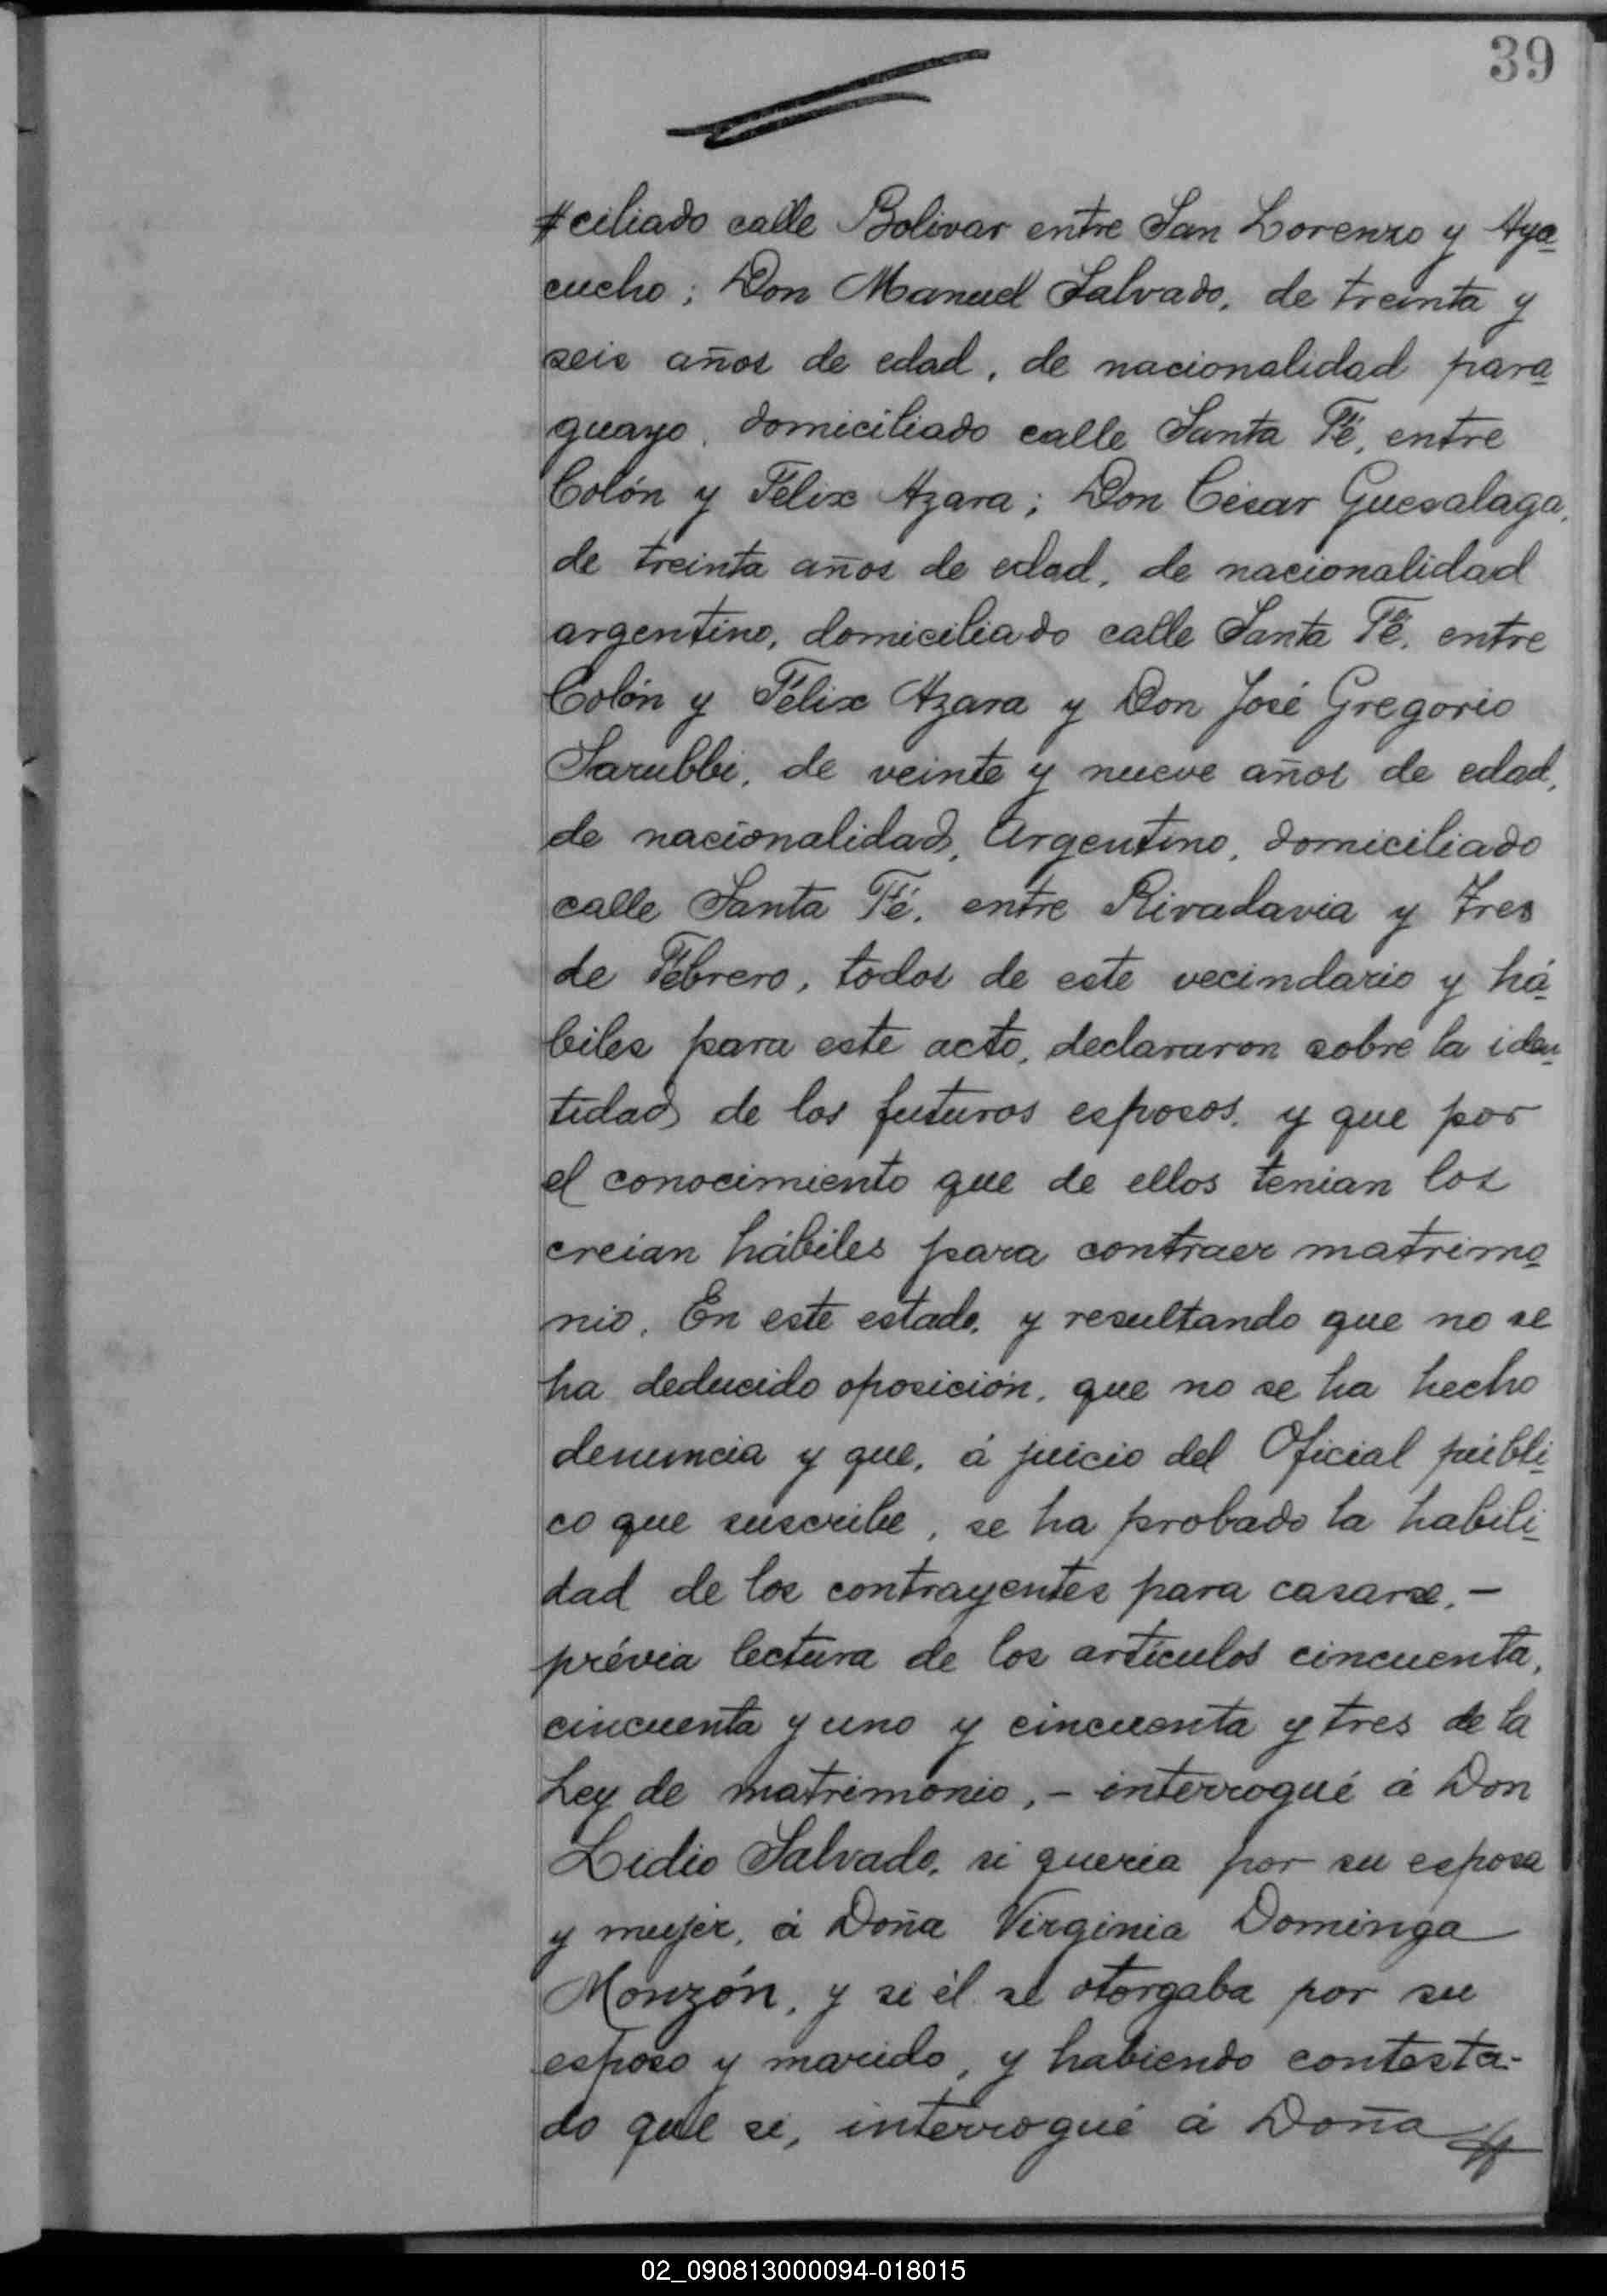 39
#ciliado calle Bolivar entre San Lorenzo y Aya
cucho; Don Manuel Salvado, de treinta y
seis años de edad, de nacionalidad para
guayo, domiciliado calle Santa Fé, entre
Colón y Félix Azara; Don César Guesalaga,
de treinta años de edad, de nacionalidad
argentino, domiciliado calle Santa Fé, entre
Colón y Félix Azara y Don José Gregorio
Sarubbi, de veinte y nueve años de edad,
de nacionalidad, Argentino, domiciliado
calle Santa Fé, entre Rivadavia y Tres
de Febrero, todos de este vecindario y há
biles para este acto, declararon sobre la iden
tidad de los futuros esposos, y que por
el conocimiento que de ellos tenian los
creian hábiles para contraer matrimo
nio. En este estado, y resultando que no se
ha deducido oposición, que no se ha hecho
denuncia y que, á juicio del Oficial públi
co que suscribe, se ha probado la habili
dad de los contrayentes para casarse, -
prévia lectura de los artículos cincuenta,
cincuenta y uno y cincuenta y tres de la
Ley de matrimonio, - interrogué á Don
Lidio Salvado, si queria por su esposa
y mujer, á Doña Virginia Dominga
Monzón, y si él se otorgaba por su
esposo y marido, y habiendo contesta-
do que si, interrogué á Doña #
02_090813000094-018015